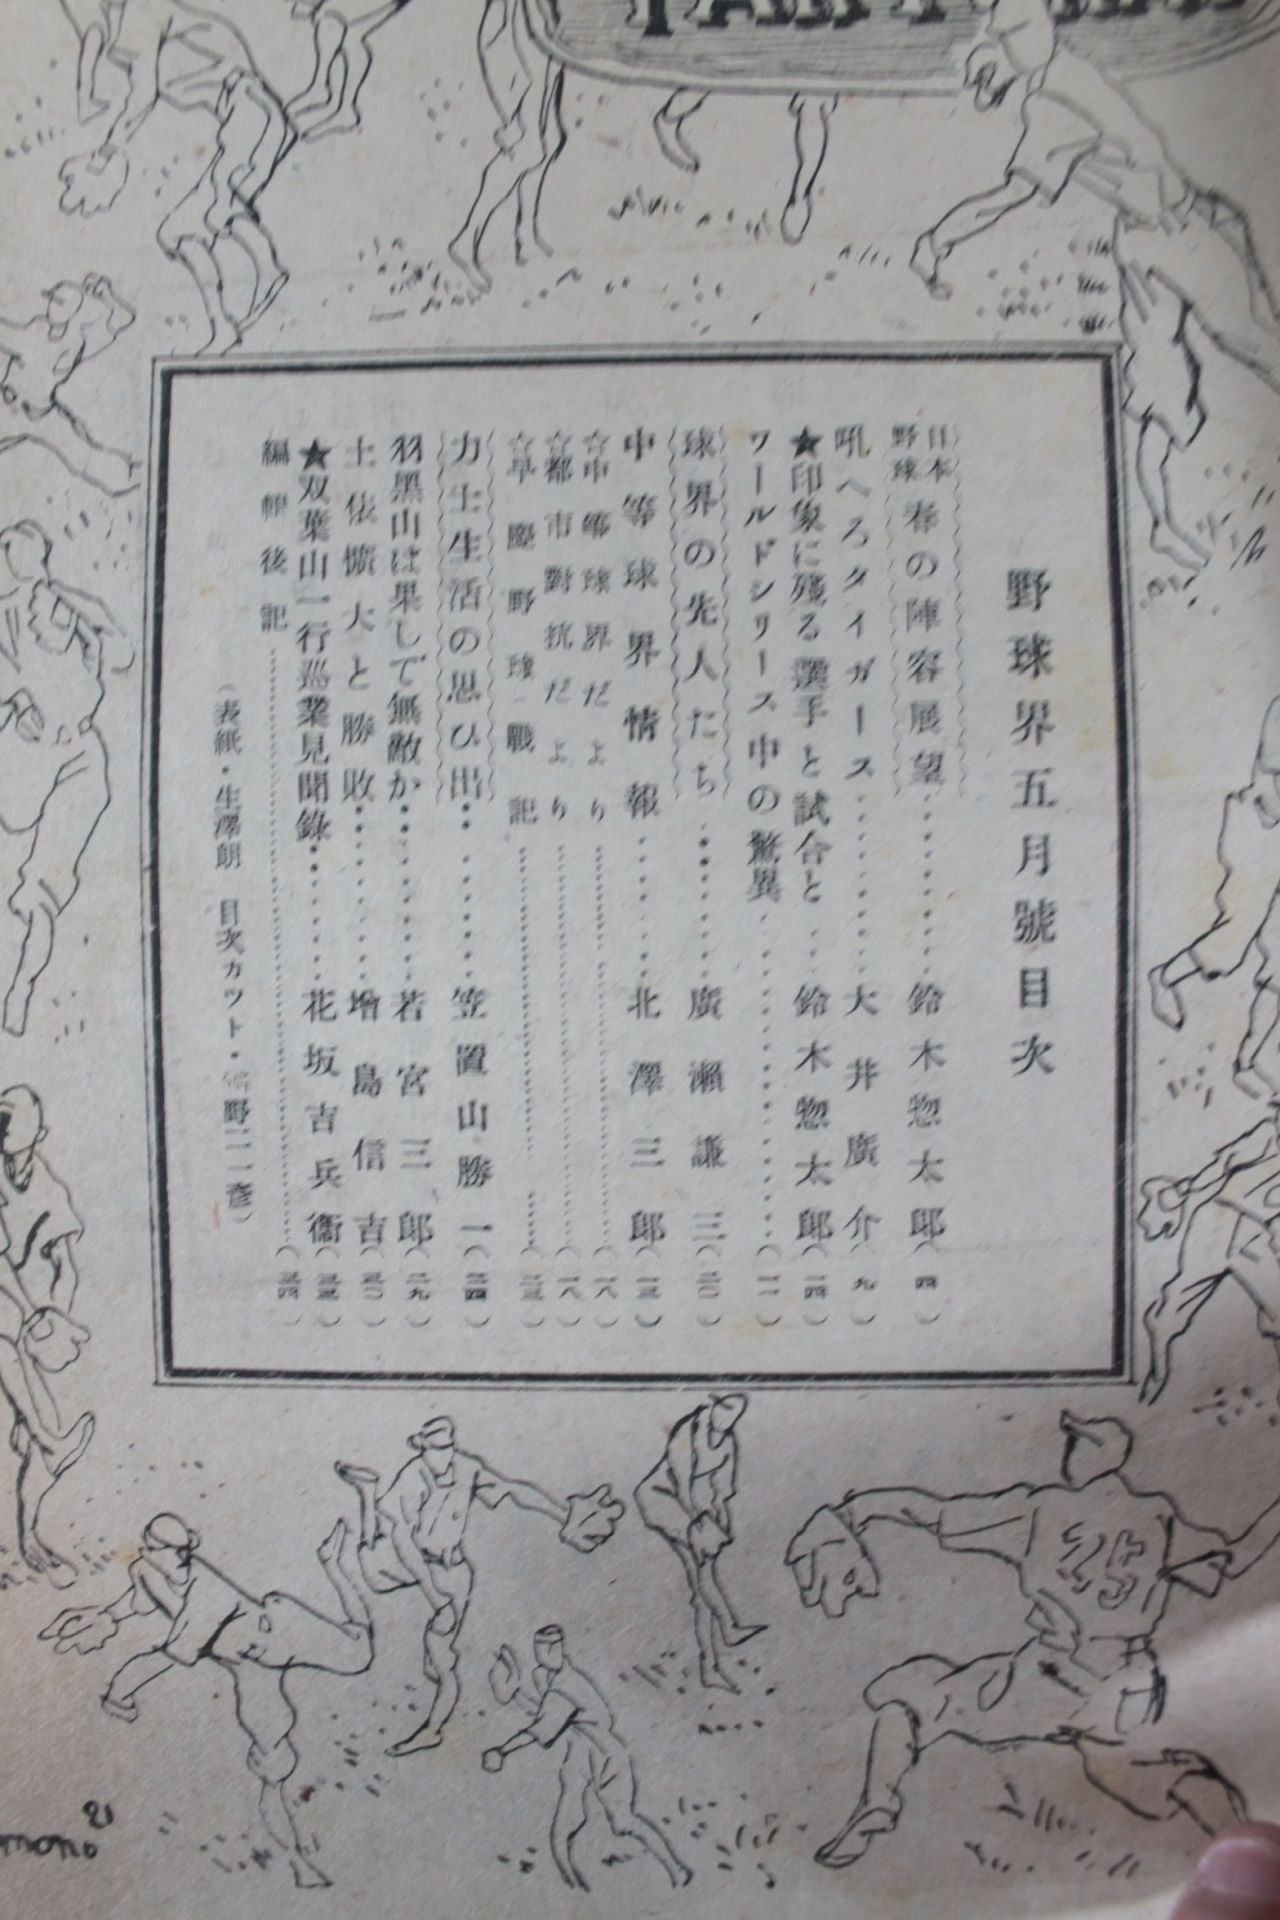 野球界五月號目次
日本野球 春の陣容展望………鈴木惣太郎(四)
吼へろタイガース………大井廣介(九)
★印象に殘る選手と試合と…鈴木惣太郎(一四)
ワールドシリース中の驚異………(一一)
球界の先人たち………廣瀬謙三(二〇)
中等球界情報………北澤三郎(一三)
☆中等球界だより………(一八)
☆都市對抗だより………(一八)
☆早慶野球戰記………(二三)
力士生活の思ひ出………笠置山勝一(二四)
羽黑山は果して無敵か………若宮三郎(二九)
土俵擴大と勝敗………增島信吉(三〇)
★双葉山一行巡業見聞錄………花坂吉兵衞(三三)
編輯後記………(三四)
(表紙・生澤朗 目次カツト・野二彦)
25
mono 21